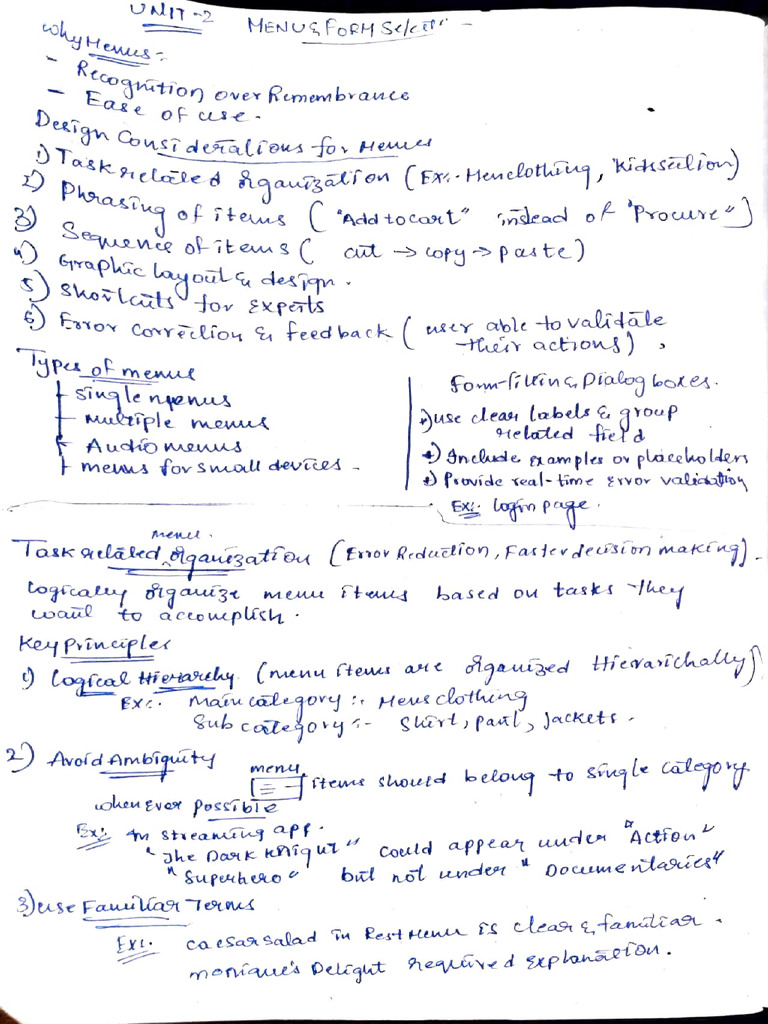 UNIT-2
MENU & FORM Selecti -
Why Menus:-
- Recognition over Remembrance
- Ease of use.
Design Considerations for Menus
1) Task related organization (Ex:- Men clothing, Kids section)
2) Phrasing of items ("Add to cart" instead of "Procure")
3) Sequence of items ( cut → copy → paste)
4) Graphic layout & design.
5) Shortcuts for Experts
6) Error correction & feedback ( user able to validate
their actions) ,
Types of menus
single menus
Multiple menus
Audio menus
menus for small devices -
Form-filling & Dialog boxes.
use clear labels & group
related field
Include Examples or placeholders
Provide real-time Error validation
Ex:- login page.
menu
Task related organization (Error Reduction, Faster decision making).
logically organize menu items based on tasks they
want to accomplish.
Key Principles
1) Logical Hierarchy (menu items are organized Hierarichally)
Ex:- Main category :- Mens clothing
Sub category :- Shirt, pant, Jackets.
2) Avoid Ambiguity
menu items should belong to single category
when ever possible
Ex:- In streaming app.
"The Dark Knight" could appear under "Action"
"Superhero" but not under "Documentaries"
3) use Familiar Terms
Ex:- caesar salad in Rest Menu is clear & familiar.
monique's Delight required Explanation.